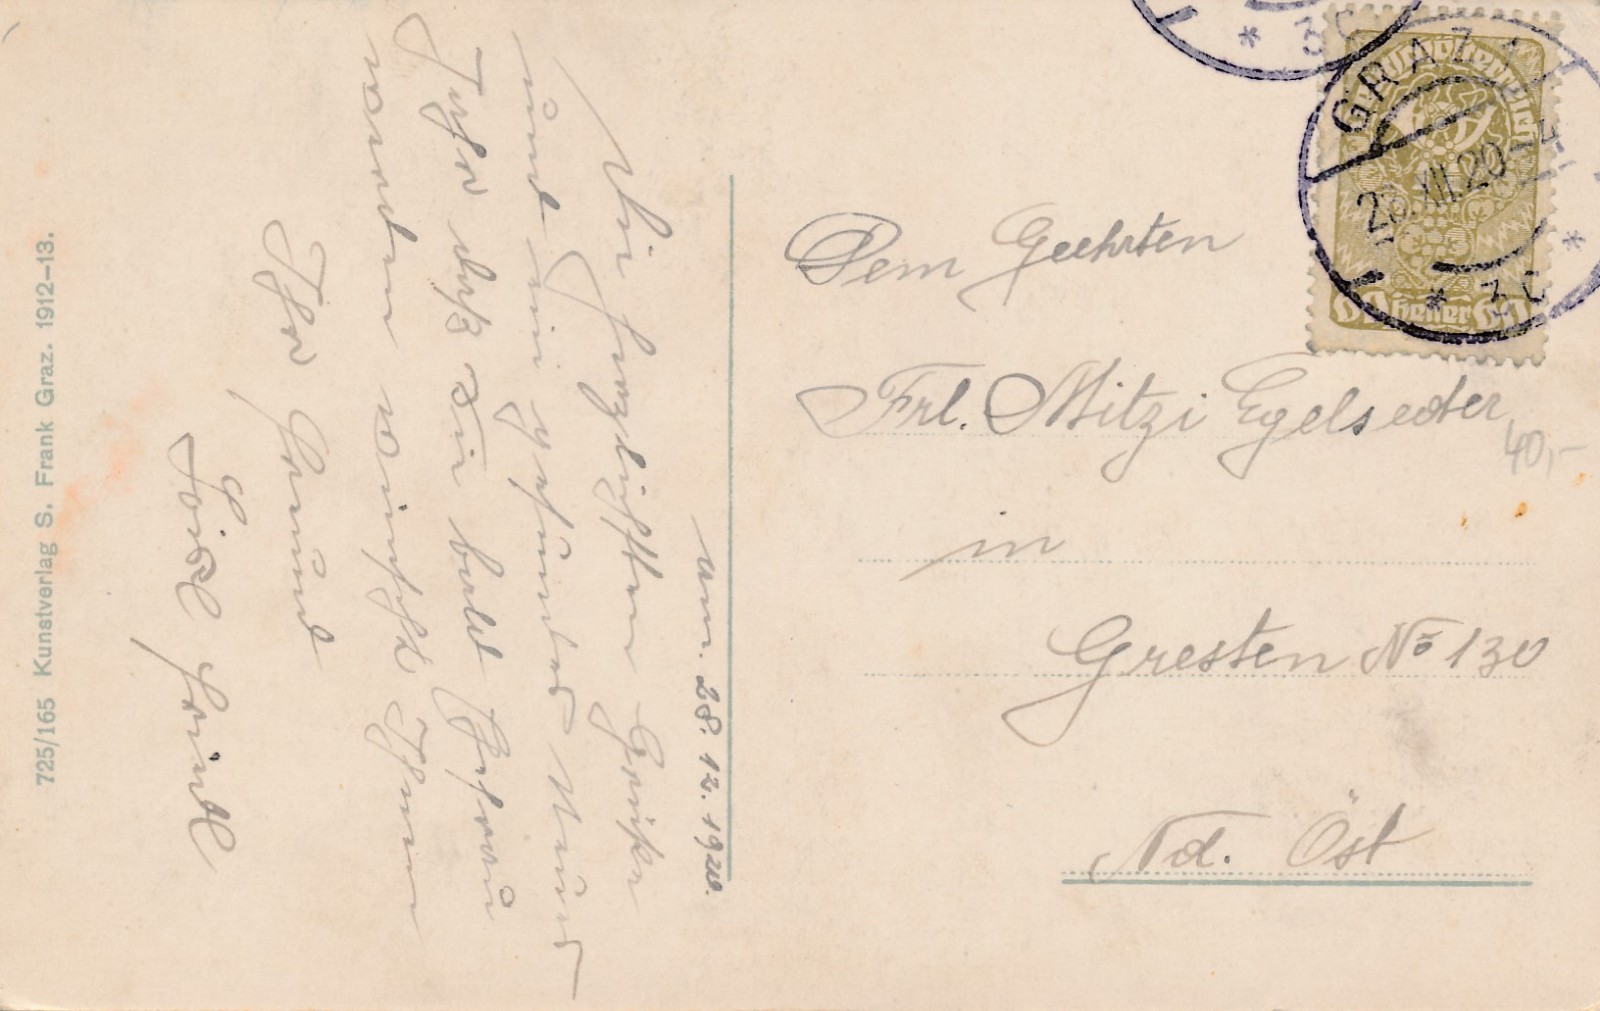 am. 28.12.1920.
Die herzlichsten Grüße
und ein gesundes Neues
Jahr daß Sie bald Ehefrau
werden wünscht Ihnen
Ihr Freund
GRAZ 1
28.XII.20
* 3c *
Deutschösterreich
60 Heller 60
Dem Geehrten
Frl. Mitzi Egelseder
40,-
in
Gresten No 130
Nd. Öst
725/165 Kunstverlag S. Frank Graz. 1912-13.